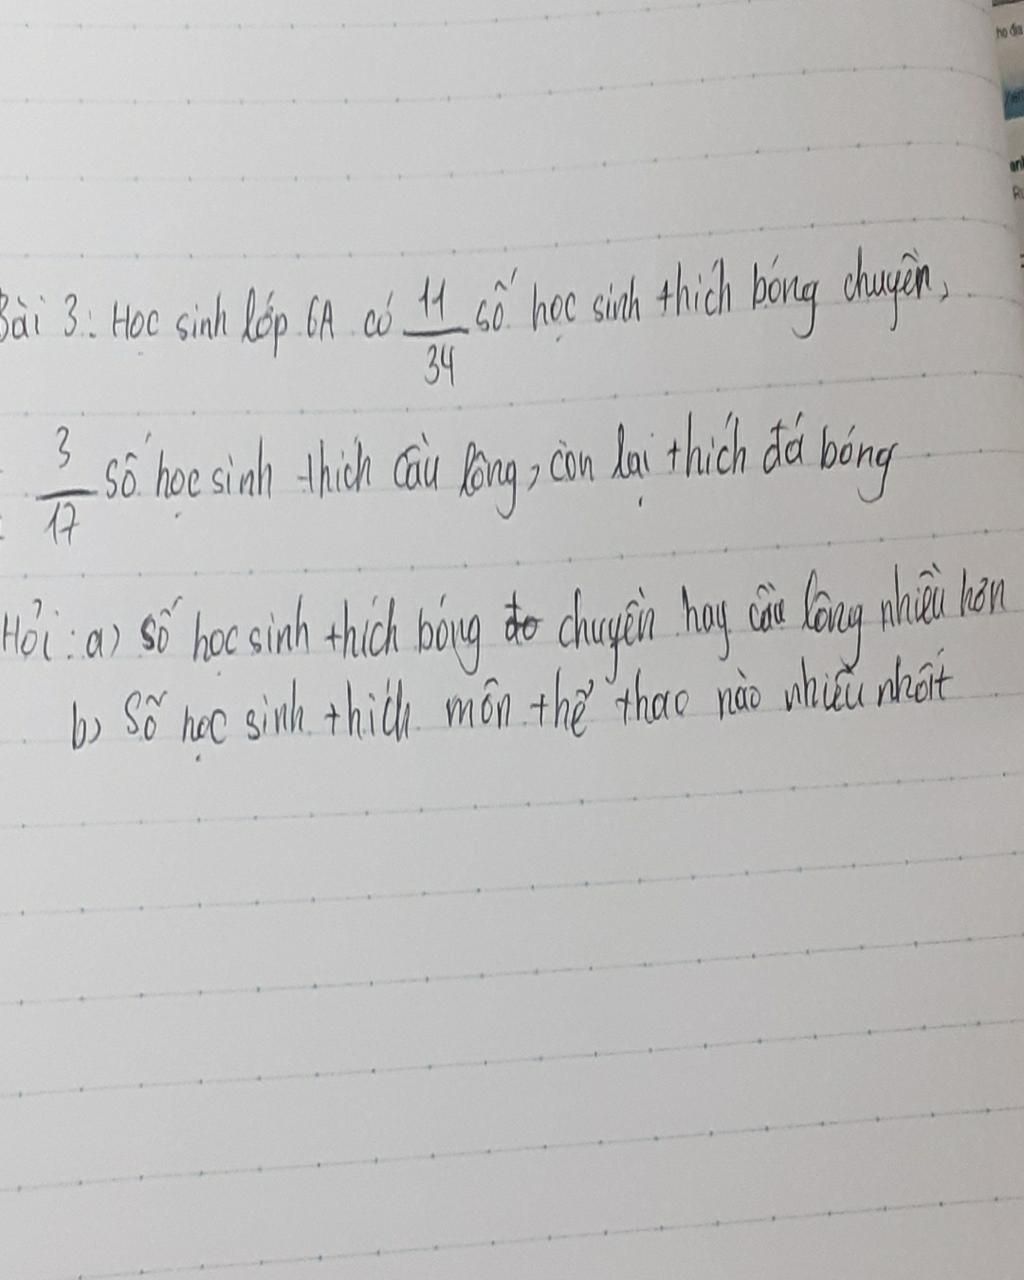 Bài 3: Học sinh lớp 6A có 11/34 số học sinh thích bóng chuyền,
3/17 số học sinh thích cầu lông, còn lại thích đá bóng
Hỏi: a) số học sinh thích bóng chuyền hay cầu lông nhiều hơn
b) Số học sinh thích môn thể thao nào nhiều nhất